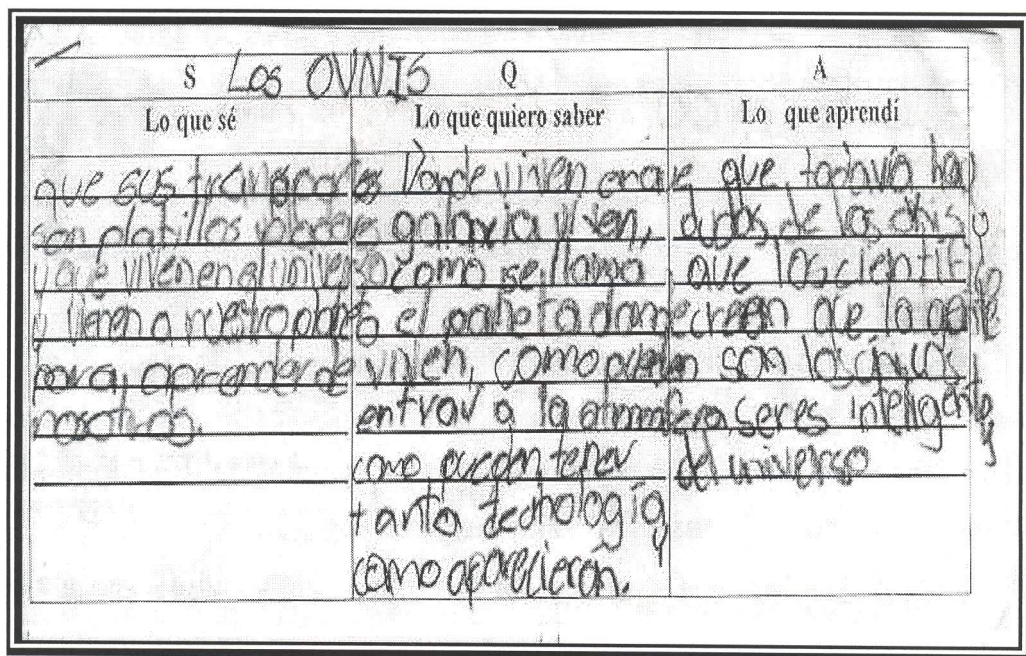 S Los OVNIS Q A
Lo que sé
Lo que quiero saber
Lo que aprendí
que sus transportes
son platillos voladores
y que viven en el universo
y vienen a nuestro planeta
para aprender de
nosotros.
Donde viven en que
galaxia viven,
como se llama
el planeta donde
viven, como pueden
entrar a la atmosfera
como pueden tener
tanta tecnología y
como aparecieron.
que todavía hay
dudas de los ovnis y
que los científicos
creen que la gente
son los únicos
seres inteligentes
del universo